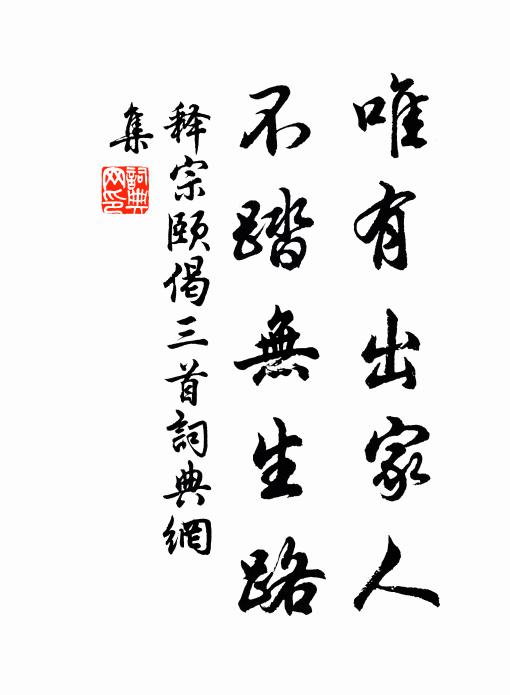 唯有出家人
不踏無生路
释宗颐偈三首詞典網
集
詞典
网印